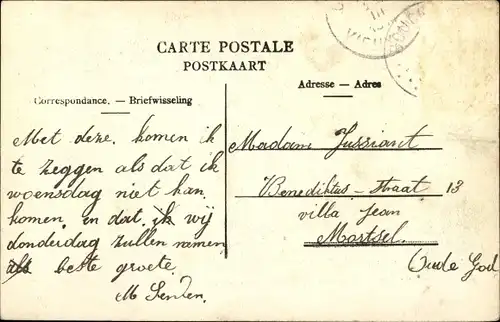 CARTE POSTALE
POSTKAART
Correspondance. — Briefwisseling
Adresse — Adres
Met deze komen ik
te zeggen als dat ik
woensdag niet kan
komen en dat ik wij
donderdag zullen namen
als beste groete.
M
Madame
Benediktus-Straat 13
villa Jean
Mortsel.
Oude God